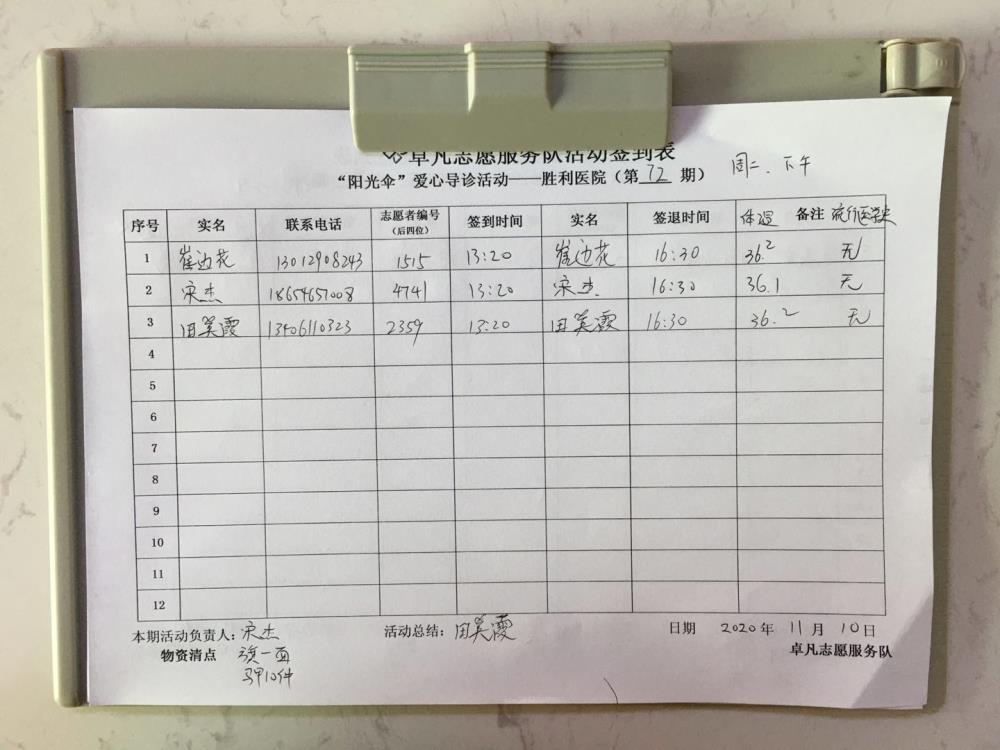 卓凡志愿服务队活动签到表
“阳光伞”爱心导诊活动——胜利医院（第 72 期） 周二、下午
序号 实名 联系电话 志愿者编号（后四位） 签到时间 实名 签退时间 体温 备注 流行医学史
1 崔边花 13012908243 1515 13:20 崔边花 16:30 36.2 无
2 宋杰 18654657008 4741 13:20 宋杰 16:30 36.1 无
3 田美霞 13406110323 2359 13:20 田美霞 16:30 36.2 无
4
5
6
7
8
9
10
11
12
本期活动负责人：宋杰 活动总结：田美霞 日期 2020年 11月 10日
物资清点 旗一面 卓凡志愿服务队
马甲10件